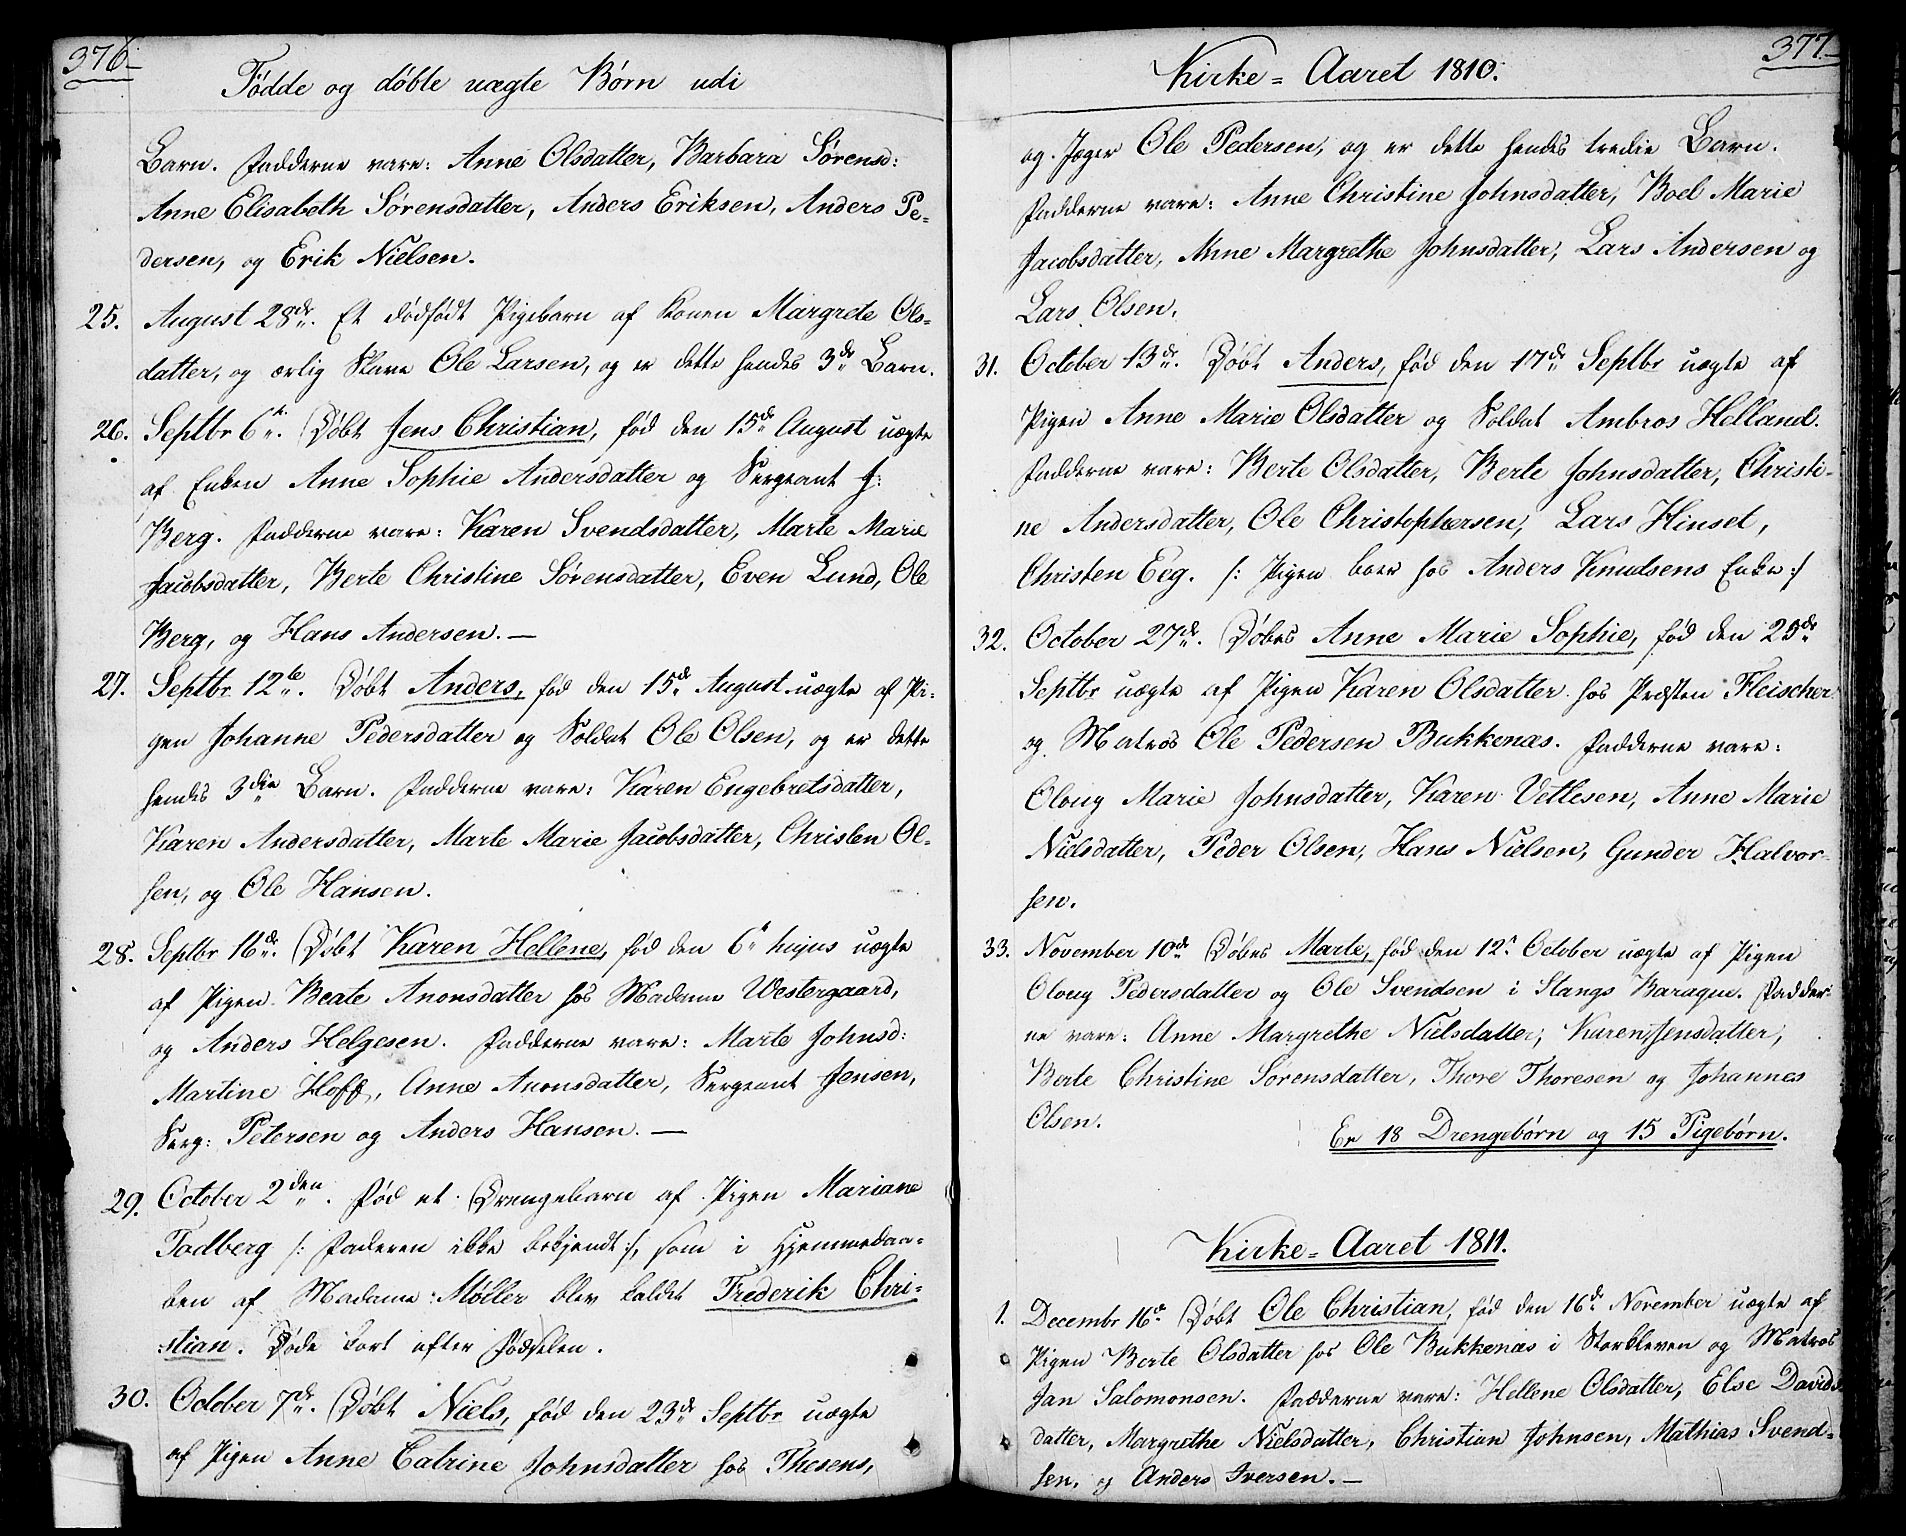 376
Fødde og døbte uægte Børn udi
Barn. Fadderne vare: Anne Olsdatter, Barbara Sørensd:
Anne Elisabeth Sørensdatter, Anders Eriksen, Anders Pe-
dersen, og Erik Nielsen.
25. August 28de. Et dødfødt Pigebarn af Konen Margrete Ols-
datter, og ærlig Slave Ole Larsen, og er dette hendes 3de Barn.
26. Septbr 6te. Døbt Jens Christian, fød den 15de August uægte
af Enken Anne Sophie Andersdatter og Sergeant J:
Berg. Fadderne vare: Karen Svendsdatter, Marte Marie
Jacobsdatter, Berte Christine Sørensdatter, Even Lund, Ole
Berg, og Hans Andersen. —
27. Septbr. 12te. Døbt Anders, fød den 15de August uægte af Pi-
gen Johanne Pedersdatter og Soldat Ole Olsen, og er dette
hendes 3die Barn. Fadderne vare: Karen Engebretsdatter,
Karen Andersdatter, Marte Marie Jacobsdatter, Christen Ol-
sen, og Ole Hansen.
28. Septbr 16de. Døbt Karen Hellene, fød den 6te hujus uægte
af Pigen Beate Anonsdatter hos Madame Westergaard,
og Anders Helgesen. Fadderne vare: Marte Johnsd:
Martine Hoff, Anne Anonsdatter, Sergeant Jensen,
Serg: Petersen og Anders Hansen. —
29. October 2den. Fød et Drengebarn af Pigen Mariane
Todberg /: Faderen ikke bekjendt :/, som i Hjemmedaa-
ben af Madame Møller blev kaldet Frederik Chri-
stian. Døde kort efter Fødselen.
30. October 7de. Døbt Niels, fød den 23de Septbr uægte
af Pigen Anne Catrine Johnsdatter hos Thesens,
377
Kirke-Aaret 1810.
og Jæger Ole Pedersen, og er dette hendes tredie Barn.
Fadderne vare: Anne Christine Johnsdatter, Boel Marie
Jacobsdatter, Anne Margrethe Johnsdatter, Lars Andersen og
Lars Olsen.
31. October 13de. Døbt Anders, fød den 17de Septbr uægte af
Pigen Anne Marie Olsdatter og Soldat Ambros Helland.
Fadderne vare: Berte Olsdatter, Berte Johnsdatter, Christi-
ne Andersdatter, Ole Christophersen, Lars Hinset,
Christen Eeg. /: Pigen boer hos Anders Knudsens Enke :/
32. October 27de. Døbes Anne Marie Sophie, fød den 25de
Septbr uægte af Pigen Karen Olsdatter hos Præsten Fleischer
og Matros Ole Pedersen Bukkenæs. Fadderne vare:
Oloug Marie Johnsdatter, Karen Vetlesen, Anne Marie
Nielsdatter, Peder Olsen, Hans Nielsen, Gunder Halvor-
sen.
33. November 10de Døbes Marte, fød den 12te October uægte af Pigen
Oloug Pedersdatter og Ole Svendsen i Stangs Baraque. Fadder-
ne vare: Anne Margrethe Nielsdatter, Karen Jensdatter,
Berte Christine Sørensdatter, Thore Thoresen og Johannes
Olsen.
Er 18 Drengebørn og 15 Pigebørn.
Kirke-Aaret 1811.
1. Decembr 16de Døbt Ole Christian, fød den 16de November uægte af
Pigen Berte Olsdatter hos Ole Bukkenæs i Storkleven og Matros
Jan Salomonsen. Fadderne vare: Hellene Olsdatter, Else Davids-
datter, Margrethe Nielsdatter, Christian Johnsen, Mathias Svend-
sen, og Anders Iversen. —